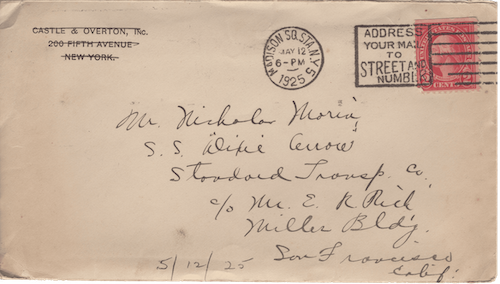 CASTLE & OVERTON, INC.
200 FIFTH AVENUE
NEW YORK.
MADISON SQ. STA. N.Y.
MAY 12
6-PM
1925
5
ADDRESS
YOUR MAIL
TO
STREET AND
NUMBER
CENTS
Mr. Nicholas Morin,
S. S. "Dixie Arrow"
Standard Transp. Co.
c/o Mr. E. R. Rich
Miller Bldg.
San Francisco
Calif.
5/12/25